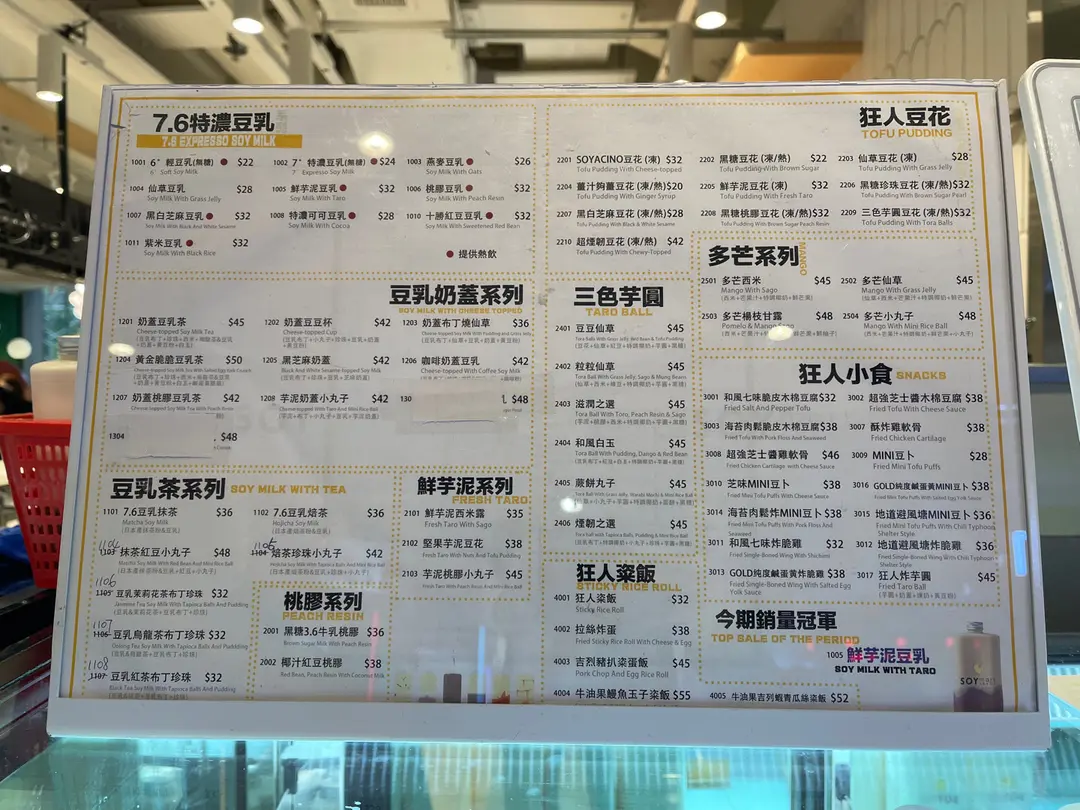 7.6特濃豆乳系列
7.6 EXPRESSO SOY MILK
1001 6° 輕豆乳(無糖) $22
6° Soft Soy Milk
1002 7° 特濃豆乳(無糖) $24
7° Expresso Soy Milk
1003 燕麥豆乳 $26
Soy Milk With Oats
1004 仙草豆乳 $28
Soy Milk With Grass Jelly
1005 鮮芋泥豆乳 $32
Soy Milk With Taro
1006 桃膠豆乳 $32
Soy Milk With Peach Resin
1007 黑白芝麻豆乳 $32
Soy Milk With Black And White Sesame
1008 特濃可可豆乳 $28
Soy Milk With Cocoa
1010 十勝紅豆豆乳 $32
Soy Milk With Sweetened Red Bean
1011 紫米豆乳 $32
Soy Milk With Black Rice
提供熱飲
豆乳奶蓋系列
SOY MILK WITH CHEESE TOPPED
1201 奶蓋豆乳茶 $45
Cheese-topped Soy Milk Tea
1202 奶蓋豆豆杯 $42
Cheese-topped Cup
1203 奶蓋布丁燒仙草 $36
1204 黃金脆脆豆乳茶 $50
1205 黑芝麻奶蓋 $42
Black And White Sesame-topped Milk
1206 咖啡奶蓋豆乳 $42
Cheese-topped With Coffee Soy Milk
1207 奶蓋桃膠豆乳茶 $42
Cheese-topped Soy Milk Tea With Peach Resin
1208 芋泥奶蓋小丸子 $42
Cheese-topped With Taro And Mini Rice Ball
130
$48
1304 $48
豆乳茶系列 SOY MILK WITH TEA
1101 7.6豆乳抹茶 $36
Matcha Soy Milk
1102 7.6豆乳焙茶 $36
Hojicha Soy Milk
1104 1103 抹茶紅豆小丸子 $48
Matcha Soy Milk With Red Bean And Mini Rice Ball
1105 1104 焙茶珍珠小丸子 $42
1106
1105 豆乳茉莉花茶布丁珍珠 $32
Jasmine Tea Soy Milk With Tapioca Balls And Pudding
1107
1106 豆乳烏龍茶布丁珍珠 $32
Oolong Tea Soy Milk With Tapioca Balls And Pudding
1108
1107 豆乳紅茶布丁珍珠 $32
Black Tea Soy Milk With Tapioca Balls And Pudding
鮮芋泥系列
FRESH TARO
2101 鮮芋泥西米露 $35
Fresh Taro With Sago
2102 堅果芋泥豆花 $38
Fresh Taro With Nuts And Tofu Pudding
2103 芋泥桃膠小丸子 $45
Fresh Taro With Peach Resin And Mini Rice Ball
桃膠系列
PEACH RESIN
2001 黑糖3.6牛乳桃膠 $36
Brown Sugar Milk With Peach Resin
2002 椰汁紅豆桃膠 $38
Red Bean, Peach Resin With Coconut Milk
狂人豆花
TOFU PUDDING
2201 SOYACINO豆花 (凍) $32
Tofu Pudding With Cheese-topped
2202 黑糖豆花 (凍/熱) $22
Tofu Pudding With Brown Sugar
2203 仙草豆花 (凍) $28
Tofu Pudding With Grass Jelly
2204 薑汁夠薑豆花 (凍/熱)$20
Tofu Pudding With Ginger Syrup
2205 鮮芋泥豆花 (凍) $32
Tofu Pudding With Fresh Taro
2206 黑糖珍珠豆花 (凍/熱)$32
Tofu Pudding With Brown Sugar Pearl
2207 黑白芝麻豆花 (凍/熱) $28
Tofu Pudding With Black & White Sesame
2208 黑糖桃膠豆花 (凍/熱)$32
Tofu Pudding With Brown Sugar Peach Resin
2209 三色芋圓豆花(凍/熱)$32
Tofu Pudding With Tora Balls
2210 超煙韌豆花 (凍/熱) $42
Tofu Pudding With Chewy-Topped
多芒系列 MANGO
2501 多芒西米 $45
Mango With Sago
(西米+芒果汁+特調椰奶+鮮芒果)
2502 多芒仙草 $45
Mango With Grass Jelly
(仙草+西米+芒果汁+特調椰奶+鮮芒果)
2503 多芒楊枝甘露 $48
Pomelo & Mango Sago
2504 多芒小丸子 $48
Mango With Mini Rice Ball
三色芋圓
TARO BALL
2401 豆豆仙草 $45
Tora Balls With Grass Jelly, Red Bean & Tofu Pudding
2402 粒粒仙草 $45
Tora Ball With Grass Jelly, Sago & Mung Beans
2403 滋潤之選 $45
Tora Ball With Toro, Peach Resin & Sago
2404 和風白玉 $45
Tora Ball With Pudding, Dango & Red Bean
2405 蕨餅丸子 $45
2406 煙韌之選 $45
Tora ball with Tapioca Balls, Pudding & Mini Rice Ball
狂人粢飯
STICKY RICE ROLL
4001 狂人粢飯 $32
Sticky Rice Roll
4002 拉絲炸蛋 $38
Fried Sticky Rice Roll With Cheese & Egg
4003 吉烈豬扒粢蛋飯 $45
Pork Chop And Egg Rice Roll
4004 牛油果鰻魚玉子粢飯 $55
4005 牛油果吉列蝦青瓜絲粢飯 $52
狂人小食 SNACKS
3001 和風七味脆皮木棉豆腐$32
Fried Salt And Pepper Tofu
3002 超強芝士醬木棉豆腐 $38
Fried Tofu With Cheese Sauce
3003 海苔肉鬆脆皮木棉豆腐$38
Fried Tofu With Pork Floss And Seaweed
3007 酥炸雞軟骨 $38
Fried Chicken Cartilage
3008 超強芝士醬雞軟骨 $46
Fried Chicken Cartilage with Cheese Sauce
3009 MINI豆卜 $28
Fried Mini Tofu Puffs
3010 芝味MINI豆卜 $38
Fried Mini Tofu Puffs With Cheese Sauce
3016 GOLD純度鹹蛋黃MINI豆卜 $38
Fried Mini Tofu Puffs With Salted Egg Yolk Sauce
3014 海苔肉鬆炸MINI豆卜$38
Fried Mini Tofu Puffs With Pork Floss And Seaweed
3015 地道避風塘MINI豆卜$36
Fried Mini Tofu Puffs With Chili Typhoon Shelter Style
3011 和風七味炸脆雞 $32
Fried Single-Boned Wing With Shichimi
3012 地道避風塘炸脆雞 $36
Fried Single-Boned Wing With Chili Typhoon Shelter Style
3013 GOLD純度鹹蛋黃炸脆雞 $38
Fried Single-Boned Wing With Salted Egg Yolk Sauce
3017 狂人炸芋圓 $45
Fried Taro Ball
今期銷量冠軍
TOP SALE OF THE PERIOD
1005 鮮芋泥豆乳
SOY MILK WITH TARO
SOY